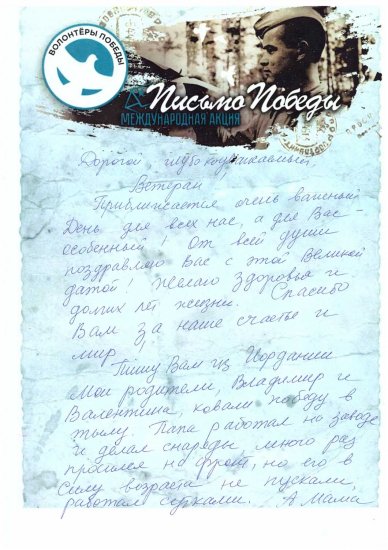 ВОЛОНТЁРЫ ПОБЕДЫ
Письмо Победы
МЕЖДУНАРОДНАЯ АКЦИЯ
Дорогой, глубокоуважаемый
Ветеран
Приближается очень важный
День для всех нас, а для Вас –
особенный! От всей души
поздравляю Вас с этой Великой
датой! Желаю здоровья и
долгих лет жизни. Спасибо
Вам за наше счастье и
мир!
Пишу Вам из Иордании
Мои родители, Владимир и
Валентина, ковали победу в
тылу. Папа работал на заводе
и делал снаряды, много раз
просился на фронт, но его в
силу возраста не пускали,
работал сутками. А Мама